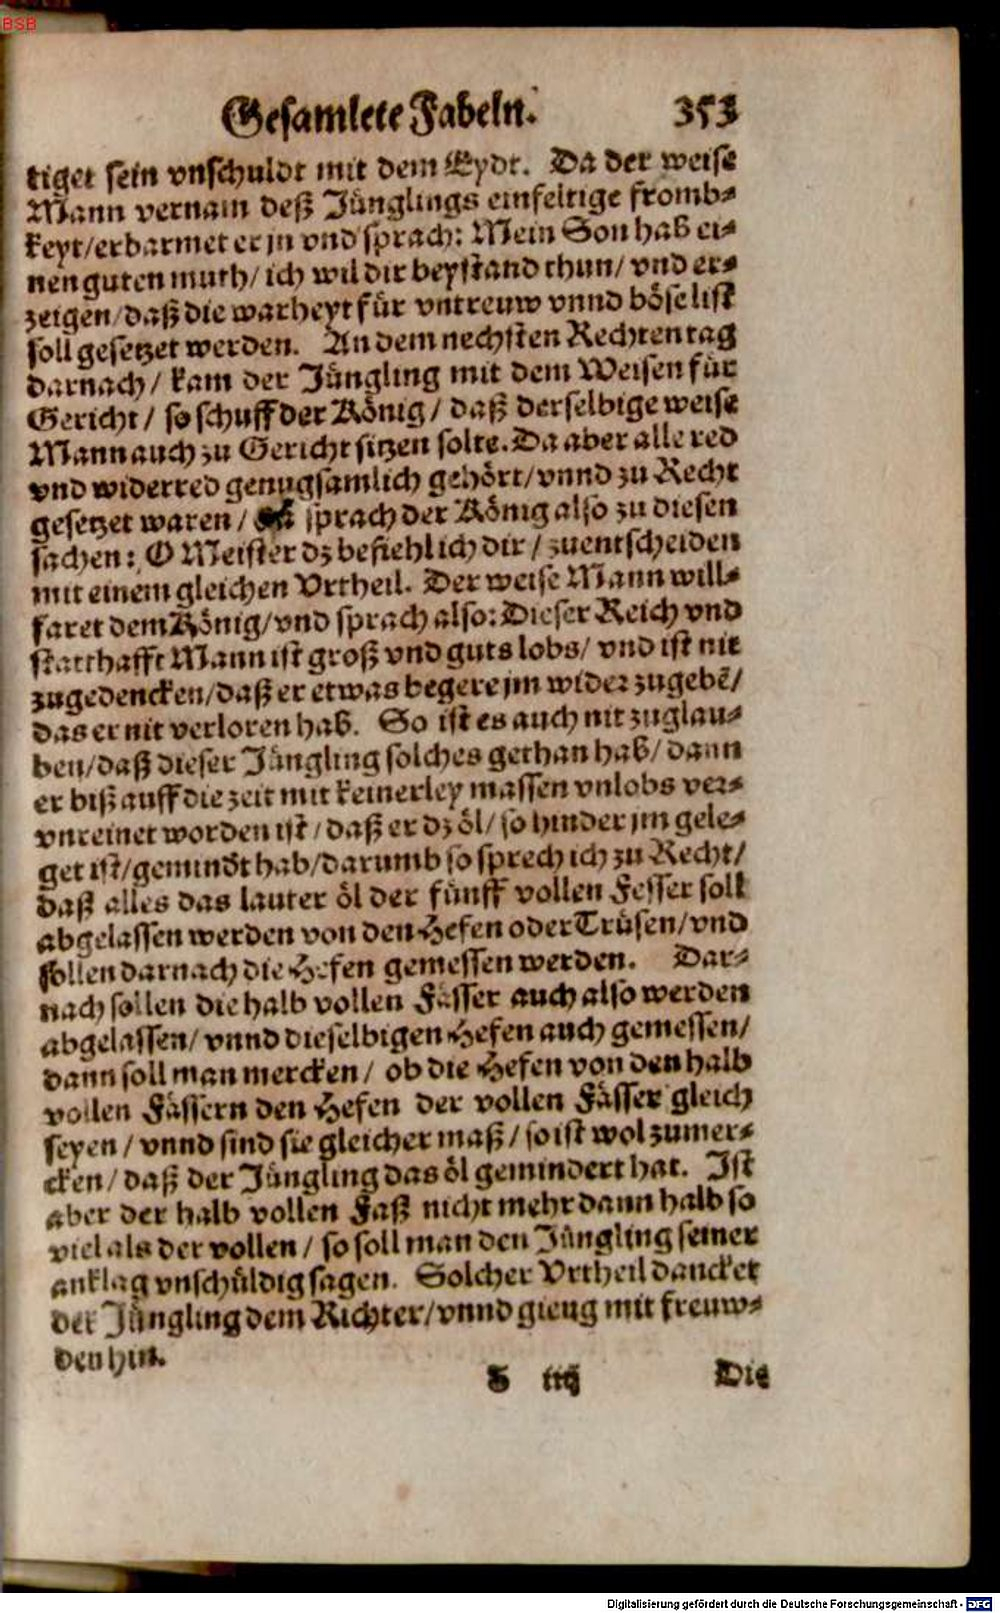 BSB
Gesamlete Fabeln. 353
tiget sein vnschuldt mit dem Eydt. Da der weise
Mann vernam deß Jünglings einfeltige fromb-
keyt/erbarmet er jn vnd sprach: Mein Son hab ei-
nen guten muth/ ich wil dir beystand thun/ vnd er-
zeigen/daß die warheyt für vntreuw vnnd böse list
soll gesetzet werden. An dem nechsten Rechtentag
darnach/ kam der Jüngling mit dem Weisen für
Gericht/ so schuff der König/ daß derselbige weise
Mann auch zu Gericht sitzen solte. Da aber alle red
vnd widerred genugsamlich gehört/vnnd zu Recht
gesetzet waren/ sprach der König also zu diesen
sachen: O Meister dz befiehl ich dir/ zuentscheiden
mit einem gleichen Vrtheil. Der weise Mann will-
faret dem König/vnd sprach also: Dieser Reich vnd
statthafft Mann ist groß vnd guts lobs/ vnd ist nit
zugedencken/daß er etwas begere jm wider zugebē/
das er nit verloren hab. So ist es auch nit zuglau-
ben/daß dieser Jüngling solches gethan hab/ dann
er biß auff die zeit mit keinerley massen vnlobs ver-
vnreinet worden ist/daß er dz öl/ so hinder jm gele-
get ist/gemindt hab/darumb so sprech ich zu Recht/
daß alles das lauter öl der fünff vollen Fesser soll
abgelassen werden von den Hefen oder Trüsen/vnd
sollen darnach die Hefen gemessen werden. Dar-
nach sollen die halb vollen Fässer auch also werden
abgelassen/ vnnd dieselbigen Hefen auch gemessen/
dann soll man mercken/ ob die Hefen von den halb
vollen Fässern den Hefen der vollen Fässer gleich
seyen/ vnnd sind sie gleicher maß/ so ist wol zumer-
cken/ daß der Jüngling das öl gemindert hat. Ist
aber der halb vollen Faß nicht mehr dann halb so
viel als der vollen/ so soll man den Jüngling seiner
anklag vnschüldig sagen. Solcher Vrtheil dancket
der Jüngling dem Richter/vnnd gieng mit freuw-
den hin.
iiij Die
Digitalisierung gefördert durch die Deutsche Forschungsgemeinschaft - DFG